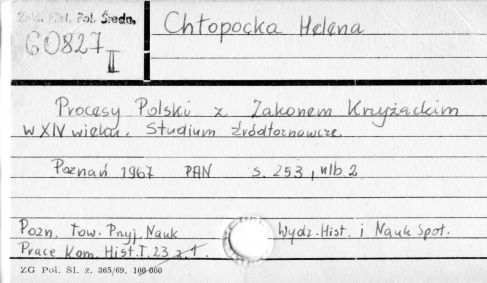 Zakł. Hist. Pol. Średn.
60827 II
Chłopocka Helena
Procesy Polski z Zakonem Krzyżackim
w XIV wieku. Studium źródłoznawcze.
Poznań 1967 PAN s. 253, nlb. 2
Pozn. Tow. Przyj. Nauk Wydz. Hist. i Nauk Społ.
Prace Kom. Hist. T. 23 z. 1.
ZG Pol. Śl. z. 365/69. 100 000